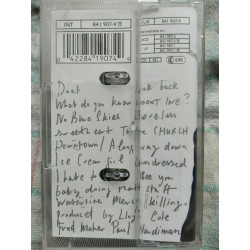 INT
841 907-4
UK
841 907-4
CD
LP
0 42284 19074
Dont look back
What do you know about love?
No Blue Skies Loveless
sweetheart To the CHURCH
Downtown / A long way down
Ice Cream Girl Undressed
I hate to see you
baby doing that stuff
Waterline Mercy Killing.
produced by Lloyd Cole
Fred Maher Paul Hardiman